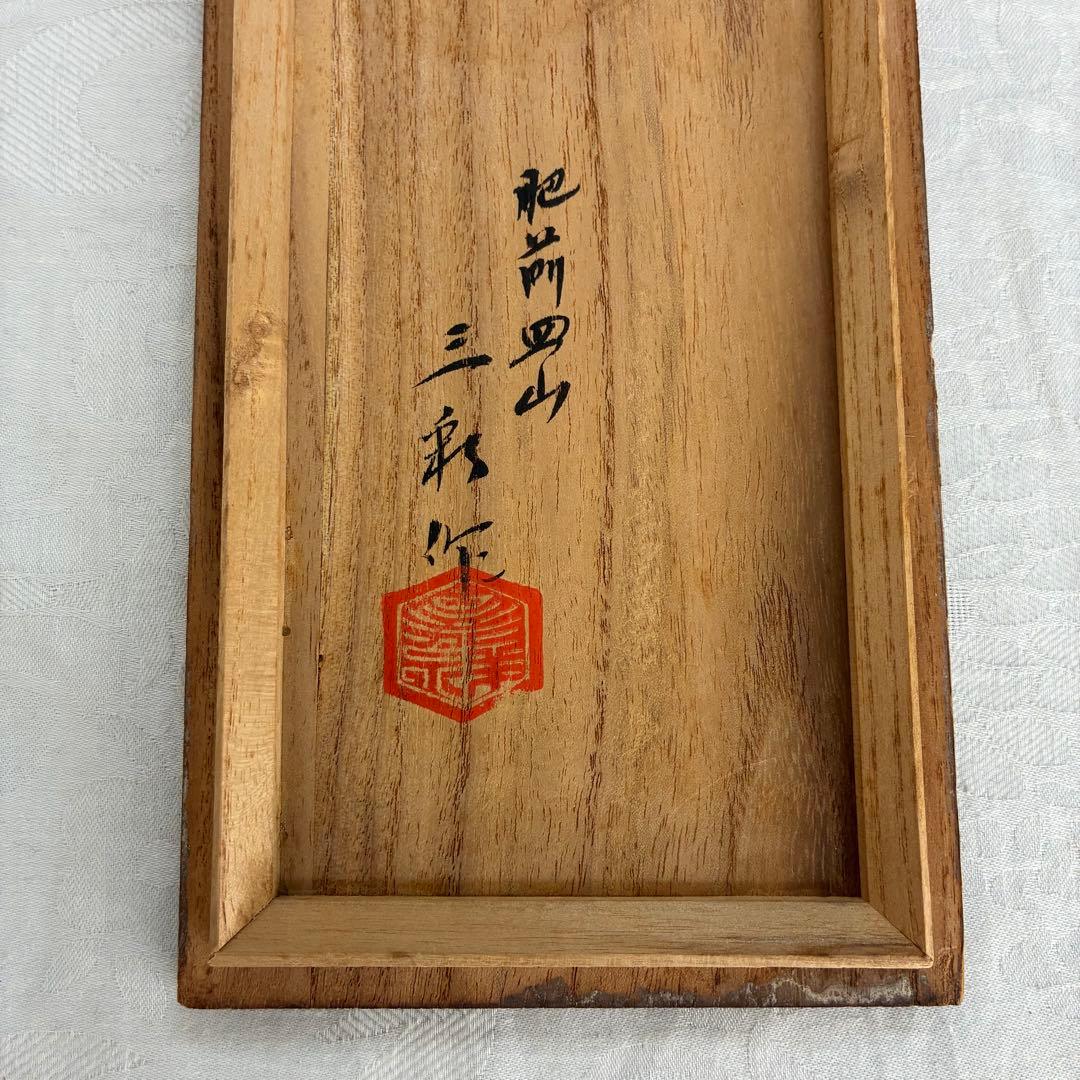 肥前皿山
三彩作